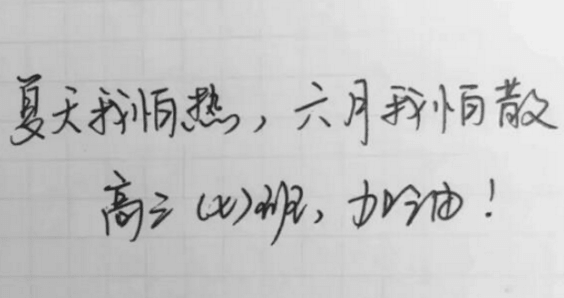 夏天我怕热，六月我怕散
高三（x）班，加油！